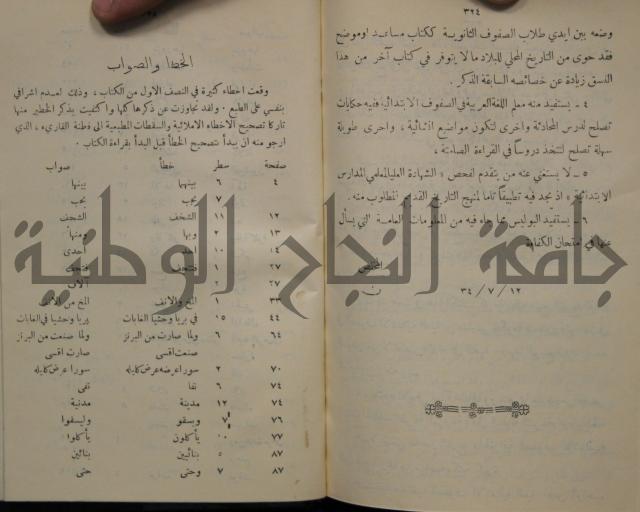 ٣٢٤
وضعه بين ايدي طلاب الصفوف الثانوية ككتاب مساعد اوموضع
فقد حوى من التاريخ المحلي للبلاد ما لا يتوفر في كتاب آخر من هذا
النسق زيادة عن خصائصه السابقة الذكر.
٤ - يستفيد منه معلم اللغة العربية في الصفوف الابتدائية ففيه حكايات
تصلح لدرس المحادثة واخرى لتكون مواضيع انشائية، واخرى طويلة
سهلة تصلح لتتخذ دروساً في القراءة الصامتة،
٥ - لا يستغني عنه من يتقدم لفحص «الشهادة العليا لمعلمي المدارس
الابتدائية» اذ يجد فيه تطبيقاً تاما لمنهج التاريخ القديم المطلوب منه.
٦ - يستفيد البوليس مما جاء فيه من المعلومات العامة التي يسأل
عنها في امتحان الكفاءة
المخلص
١٢ / ٧ / ٣٤
الخطا والصواب
وقعت اخطاء كثيرة في النصف الاول من الكتاب، وذلك لعدم اشرافي
بنفسي على الطبع. ولقد تجاوزت عن ذكرها كلها واكتفيت بذكر الخطير منها
تاركا تصحيح الاخطاء الاملائية والسقطات المطبعية الى فطنة القارىء، الذي
ارجو منه ان يبدأ بتصحيح الخطأ قبل البدأ بقراءة الكتاب.
صفحة سطر خطأ صواب
٤ ٦ بينهما بينها
٧ يجب يجب
١٢ ١١ الشخف الشجف
١٣ ٢ وبها ومنها
١٤ ١٠ احد أحدى
٢٧ ١ فتتجف فتجف
٢٧ ٢ آلاف
٣٣ ١ المخ والانف المخ من الانف
٤٤ ١٥ في بريا وحشيا الغابات بريا وحشيا في الغابات
٦٤ ٦ ولما صارت من البرنز ولما صنعت من البرنز
صنعت اقسى صارت اقسى
٧٠ ٢ سورا عرضه عرض كايله سورا عرض كايله
٧٤ ٦ نفا نفى
٧٤ ١٢ مدينة مدنية
٧٦ ٧ ويسقو وليسقوا
٧٧ ١٠ يأكلون يأكلوا
٨٧ ٥ بنائيين بنائين
٨٧ ٧ وحتى حتى
جامعة النجاح الوطنية